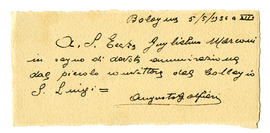 Bologna 5/5/1934 XII
A. S. Ecc. Guglielmo Marconi
in segno di devota ammirazione
dal piccolo
del Collegio
S. Luigi =
Augusto Zolfieri